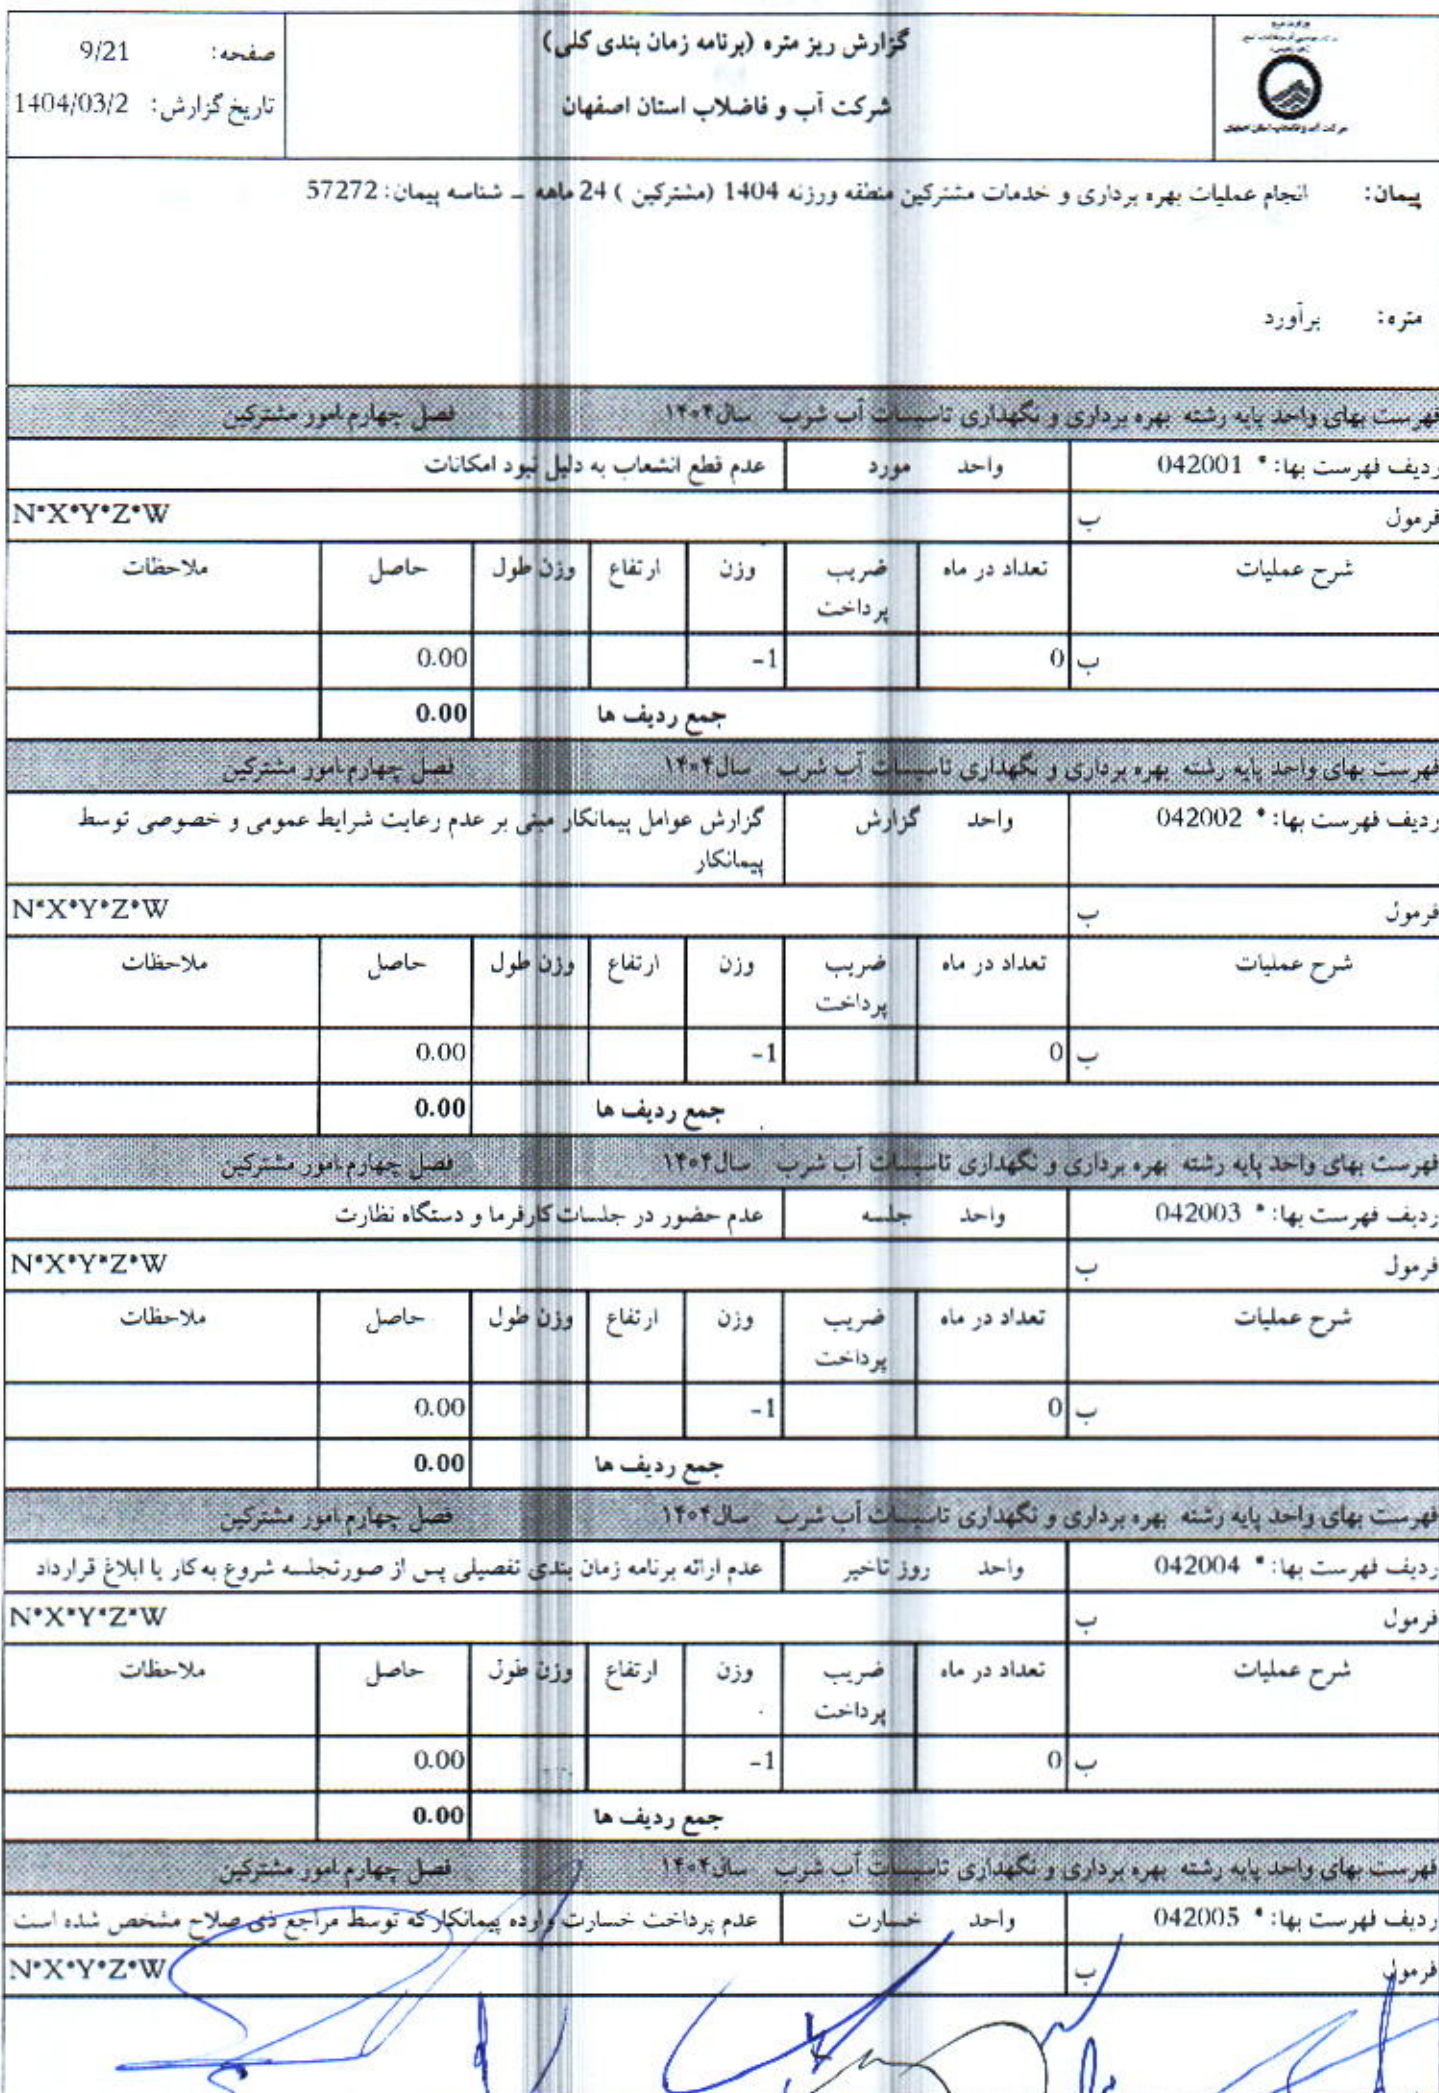 گزارش ریز متره (برنامه زمان بندی کلی)
شرکت آب و فاضلاب استان اصفهان
صفحه: 9/21
تاریخ گزارش: 1404/03/2
شرکت آب و فاضلاب استان اصفهان
پیمان: انجام عملیات بهره برداری و خدمات مشترکین منطقه ورزنه 1404 (مشترکین ) 24 ماهه ـ شناسه پیمان: 57272
متره: برآورد
فهرست بهای واحد پایه رشته بهره برداری و نگهداری تاسیسات آب شرب سال۱۴۰۴ فصل چهارم.امور مشترکین
ردیف فهرست بها: * 042001 واحد مورد عدم قطع انشعاب به دلیل نبود امکانات
فرمول ب N*X*Y*Z*W
شرح عملیات تعداد در ماه ضریب پرداخت وزن ارتفاع وزن طول حاصل ملاحظات
ب 0 -1 0.00
جمع ردیف ها 0.00
فهرست بهای واحد پایه رشته بهره برداری و نگهداری تاسیسات آب شرب سال۱۴۰۴ فصل چهارم.امور مشترکین
ردیف فهرست بها: * 042002 واحد گزارش گزارش عوامل پیمانکار مبنی بر عدم رعایت شرایط عمومی و خصوصی توسط
پیمانکار
فرمول ب N*X*Y*Z*W
شرح عملیات تعداد در ماه ضریب پرداخت وزن ارتفاع وزن طول حاصل ملاحظات
ب 0 -1 0.00
جمع ردیف ها 0.00
فهرست بهای واحد پایه رشته بهره برداری و نگهداری تاسیسات آب شرب سال۱۴۰۴ فصل چهارم.امور مشترکین
ردیف فهرست بها: * 042003 واحد جلسه عدم حضور در جلسات کارفرما و دستگاه نظارت
فرمول ب N*X*Y*Z*W
شرح عملیات تعداد در ماه ضریب پرداخت وزن ارتفاع وزن طول حاصل ملاحظات
ب 0 -1 0.00
جمع ردیف ها 0.00
فهرست بهای واحد پایه رشته بهره برداری و نگهداری تاسیسات آب شرب سال۱۴۰۴ فصل چهارم.امور مشترکین
ردیف فهرست بها: * 042004 واحد روز تاخیر عدم ارائه برنامه زمان بندی تفصیلی پس از صورتجلسه شروع به کار یا ابلاغ قرارداد
فرمول ب N*X*Y*Z*W
شرح عملیات تعداد در ماه ضریب پرداخت وزن ارتفاع وزن طول حاصل ملاحظات
ب 0 -1 0.00
جمع ردیف ها 0.00
فهرست بهای واحد پایه رشته بهره برداری و نگهداری تاسیسات آب شرب سال۱۴۰۴ فصل چهارم.امور مشترکین
ردیف فهرست بها: * 042005 واحد خسارت عدم پرداخت خسارت وارده پیمانکار که توسط مراجع ذی صلاح مشخص شده است
فرمول ب N*X*Y*Z*W